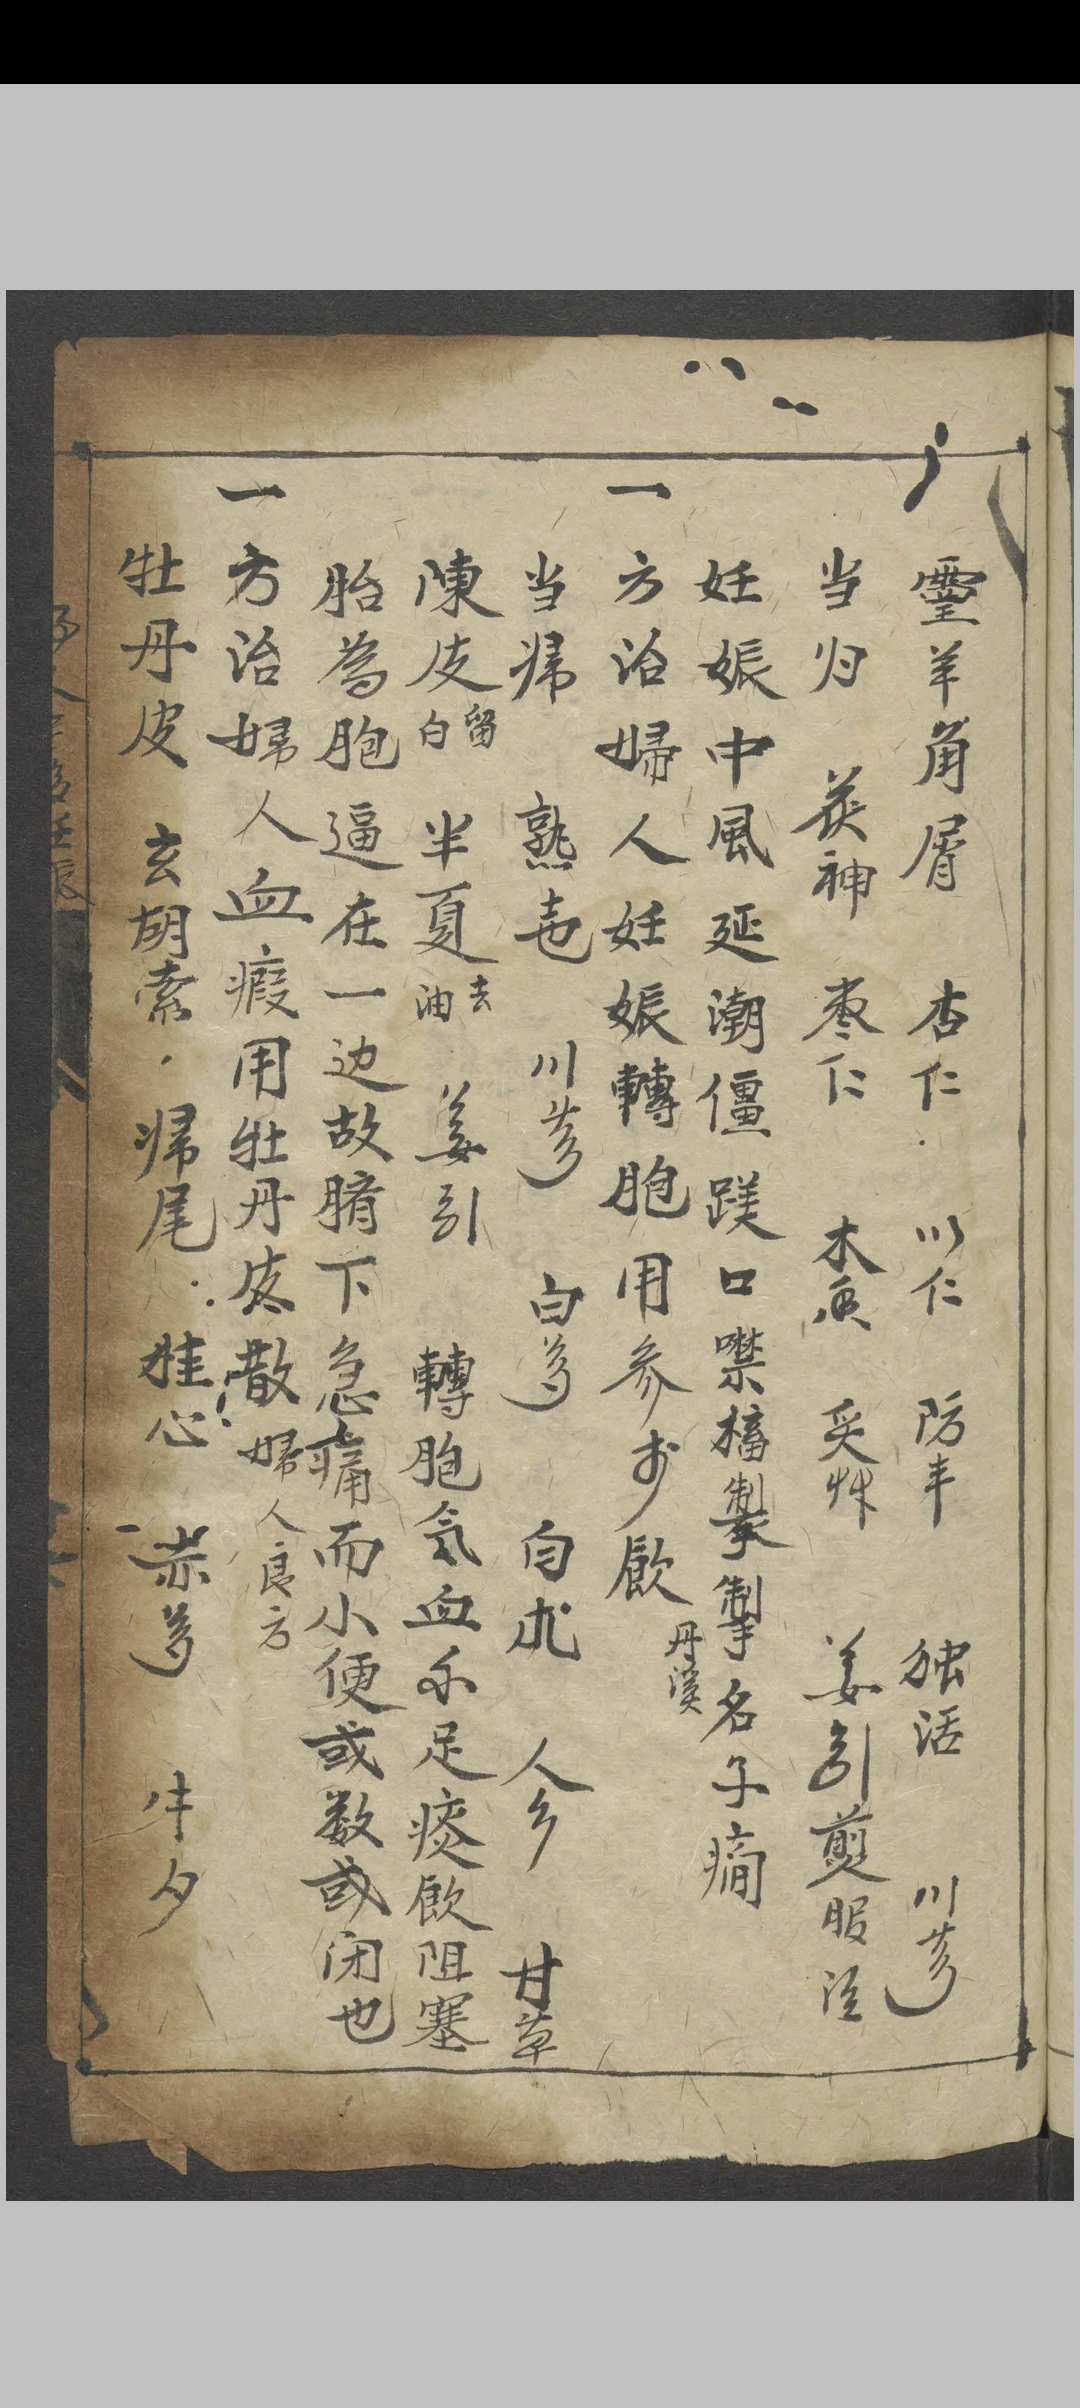 霊羊角屑 杏仁 以仁 防丰 独活 川芎
当归 茯神 枣仁 木香 炙艸 姜引煎服治
妊娠中風延潮僵蹼口噤搐掣名子癎
一方治婦人妊娠轉胞用参朮飲 丹溪
当帰 熟苄 川芎 白芍 白朮 人参 甘草
陳皮留白 半夏去油 姜引 轉胞氣血不足痰飲阻塞
胎為胞逼在一边故臍下急痛而小便或数或闭也
一方治婦人血瘕用牡丹皮散 婦人良方
牡丹皮 玄胡索 帰尾 桂心 赤芍 牛夕